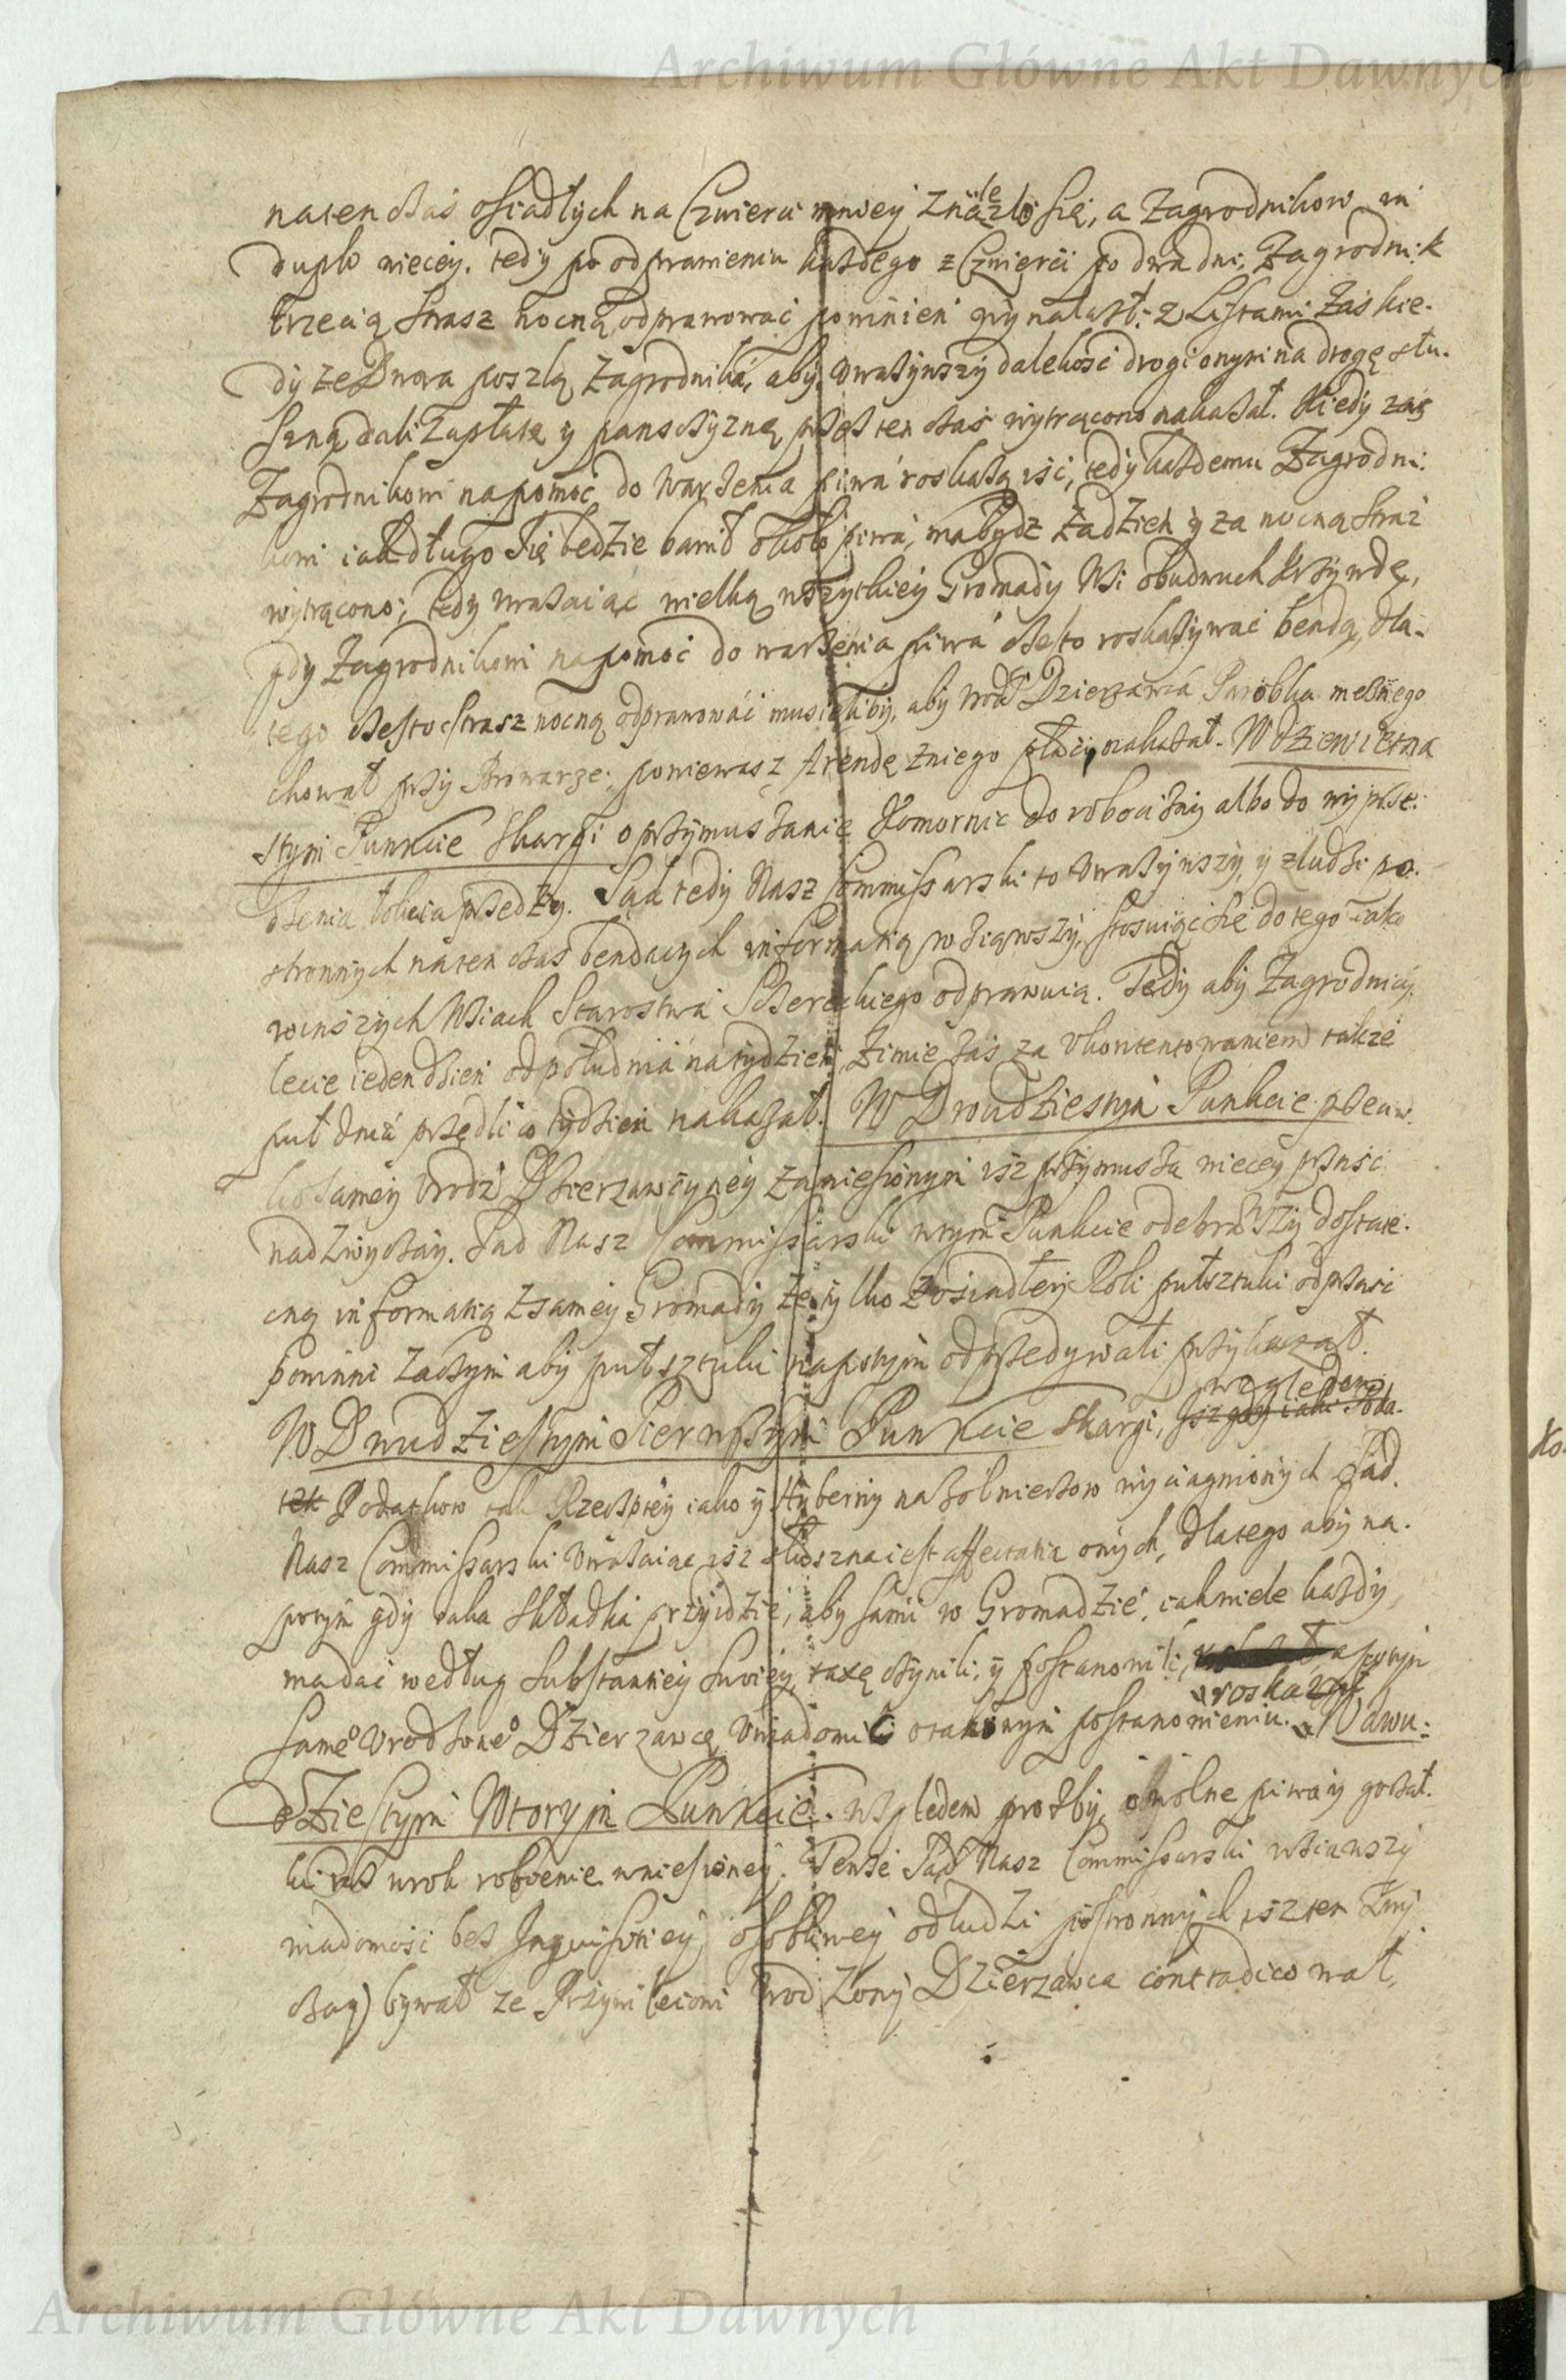 Archiwum Główne Akt Dawnych
naten czas osiadłych na Czwierci mniey znalezlo się, a Zagrodnikow in
duplo wiecey. tedy po odprawieniu każdego z Czwierci po dwa dni, Zagrodnik
trzecią Strasz nocną odprawować powinien z Listami zas kie-
dy ze Dwora poszlą Zagrodnika, aby uwazywszy dalekosc drogi onym na drogę słu-
szną dali Zapłatę y panscżyznę przez ten czas wytrącono nakazał. Kiedy zas
Zagrodnikowi na pomoc do warzenia piwa roskażą isć, tedy każdemu Zagrodni-
kowi iak długo się będzie bawił około piwa, ma bydz za dzien y za nocną straż
wytrącono; tedy uważaiąc wielką wszytkiey Gromady Wsi obudwuch krzywdę,
gdy Zagrodnikowi na pomoc do warzenia piwa często roskazywać bendą, dla-
tego często strasz nocną odprawować musieliby, aby Urodz Dzierzawca Parobka
chował przy Browarze; poniewasz Arendę z niego płaci, nakazał. W dziewietna
stym Punkcie Skargi o przymuszanie Komornic do robocizny albo do wyprze-
dzenia łokcia przedzy. Sąd tedy Nasz Commissarski to uwazywszy, y z ludzi po-
stronnych na ten czas bendących informatią wziąwszy, stosuiąc się do tego iako
w inszych Wsiach Starostwa odprawuią. Tedy aby Zagrodnicy
lecie ieden dzien od południa na tydzien, Zimie zas za ukontentowaniem także
puł dnia przędli co tydzien nakazał. W Dwudziestym Punkcie przeciw-
ko samey Urodz Dzierzawczyney zaniesionym isz przymusza wiecey prząsc
nad zwyczay. Sąd Nasz Commissarski w tym Punkcie odebrawszy dostate-
czną informatią z samey Gromady że tylko z osiadłey Roli pułsztuki odprząsć
powinni Zaczym aby pułsztuki napotym odprzedywali przykazał.
względem
W Dwudziestym Pierwszym Punkcie Skargi, isz gdy iaki Poda-
tek Podatkow tak Rzeczptey iako y Hyberny na żołnierzow wyciągnionych Sąd
Nasz Commissarski uważaiąc isz słuszna iest affectatia onych, dlatego aby na-
potym gdy taka składka przyidzie, aby sami w Gromadzie, iak wiele każdy
ma dać według substantiey swoiey, taxę czynili, y postanowili, a potym
roskazał
sameo Urodzoneo Dzierzawcę uwiadomić o takowym postanowieniu. W dwu-
dziestym Wtorym Punkcie. względem prożby o wolne piwa y gorzał-
ki w rok robienie wniesioney. Tenże Sąd Nasz Commissarski wziawszy
wiadomość bez Inquisitiey osobliwey od ludzi postronnych, isz ten zwy
czay bywał ze Przywileiowi Urodzony Dzierzawca contradicował,
Ko-
Archiwum Główne Akt Dawnych